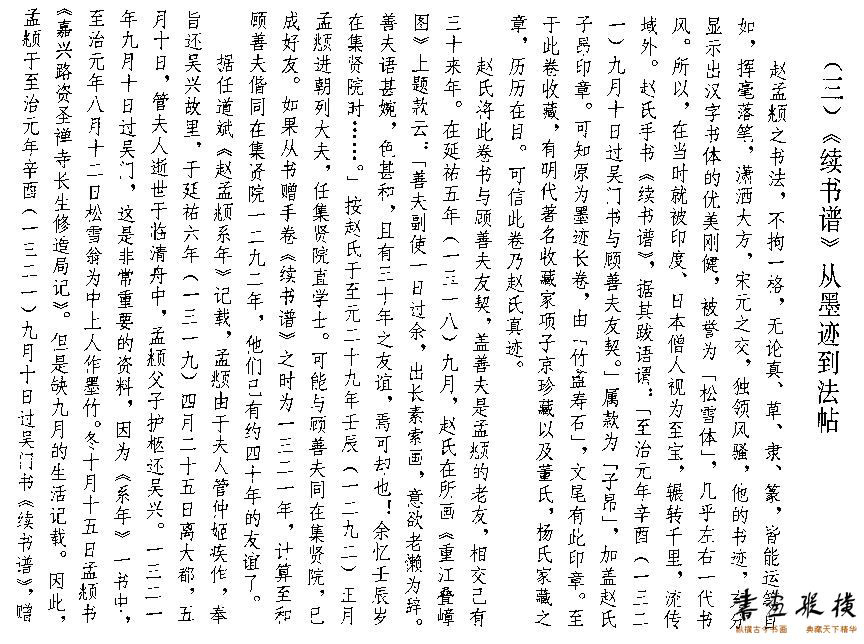 （三）《续书谱》从墨迹到法帖
赵孟頫之书法，不拘一格，无论真、草、隶、篆，皆能运笔自
如，挥毫落笔，潇洒大方，宋元之交，独领风骚，他的书迹，分
显示出汉字书体的优美刚健，被誉为「松雪体」，几乎左右一代书
风。所以，在当时就被印度、日本僧人视为至宝，辗转千里，流传
域外。赵氏手书《续书谱》，据其跋语谓：「至治元年辛酉（一三二
一）九月十日过吴门书与顾善夫友契。」属款为「子昂」，如盖赵氏
子昂印章。可知原为墨迹长卷，由「竹孟寿石」，文尾有此印章。至
于此卷收藏，有明代著名收藏家项子京珍藏以及董氏，杨氏家藏之
章，历历在目。可信此卷乃赵氏真迹。
赵氏将此卷书与顾善夫友契，盖善夫是孟頫的老友，相交已有
三十来年。在延祐五年（一三一八）九月，赵氏在所画《重江叠嶂
图》上题款云：「善夫副使一日过余，出长素索画，意欲老懒为辞。
善夫语甚婉，色甚和，且有三十年之友谊，焉可却也！余忆壬辰岁
在集贤院时……。」按赵氏于至元二十九年壬辰（一二九二）正月
孟頫进朝列大夫，任集贤院直学士。可能与顾善夫同在集贤院，已
成好友。如果从书赠手卷《续书谱》之时为一三二一年，计算至和
顾善夫偕同在集贤院一二九二年，他们已有约四十年的友谊了。
据任道斌《赵孟頫系年》记载，孟頫由于夫人管仲姬疾作，奉
旨还吴兴故里，于延祐六年（一三一九）四月二十五日离大都，五
月十日，管夫人逝世于临清舟中，孟頫父子护柩还吴兴。一三二一
年九月十日过吴门，这是非常重要的资料，因为《系年》一书中，
至治元年八月十二日松雪翁为中上人作墨竹。冬十月十五日孟頫书
《嘉兴路资圣禅寺长生修造局记》。但是缺九月的生活记载。因此，
孟頫于至治元年辛酉（一三二一）九月十日过吴门书《续书谱》，赠
書画纵横
纵横古今书画 典藏天下精华